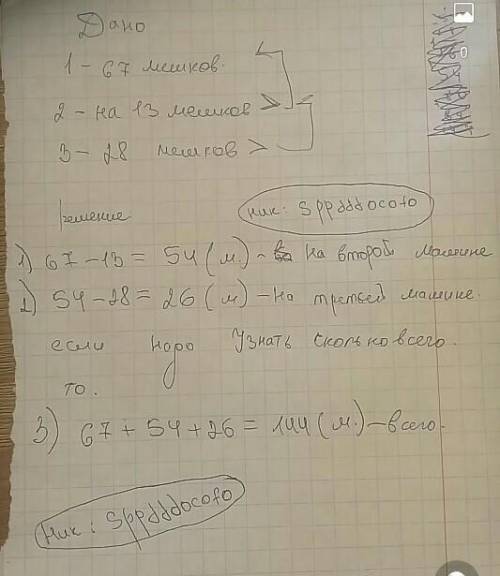 Дано
1 - 67 мешков.
2 - на 13 мешков >
3 - 28 мешков >
решение
ник: Sppddddocofo
1) 67 - 13 = 54 (м.) - на второй машине
2) 54 - 28 = 26 (м) - на третьей машине.
если надо узнать сколько всего.
то.
3) 67 + 54 + 26 = 144 (м.) - всего.
ник: Sppddddocofo